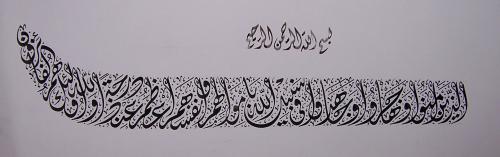 بسم الله الرحمن الرحيم
الذين آمنوا وهاجروا وجاهدوا في سبيل الله بأموالهم وأنفسهم أعظم درجة عند الله وأولئك هم الفائزون